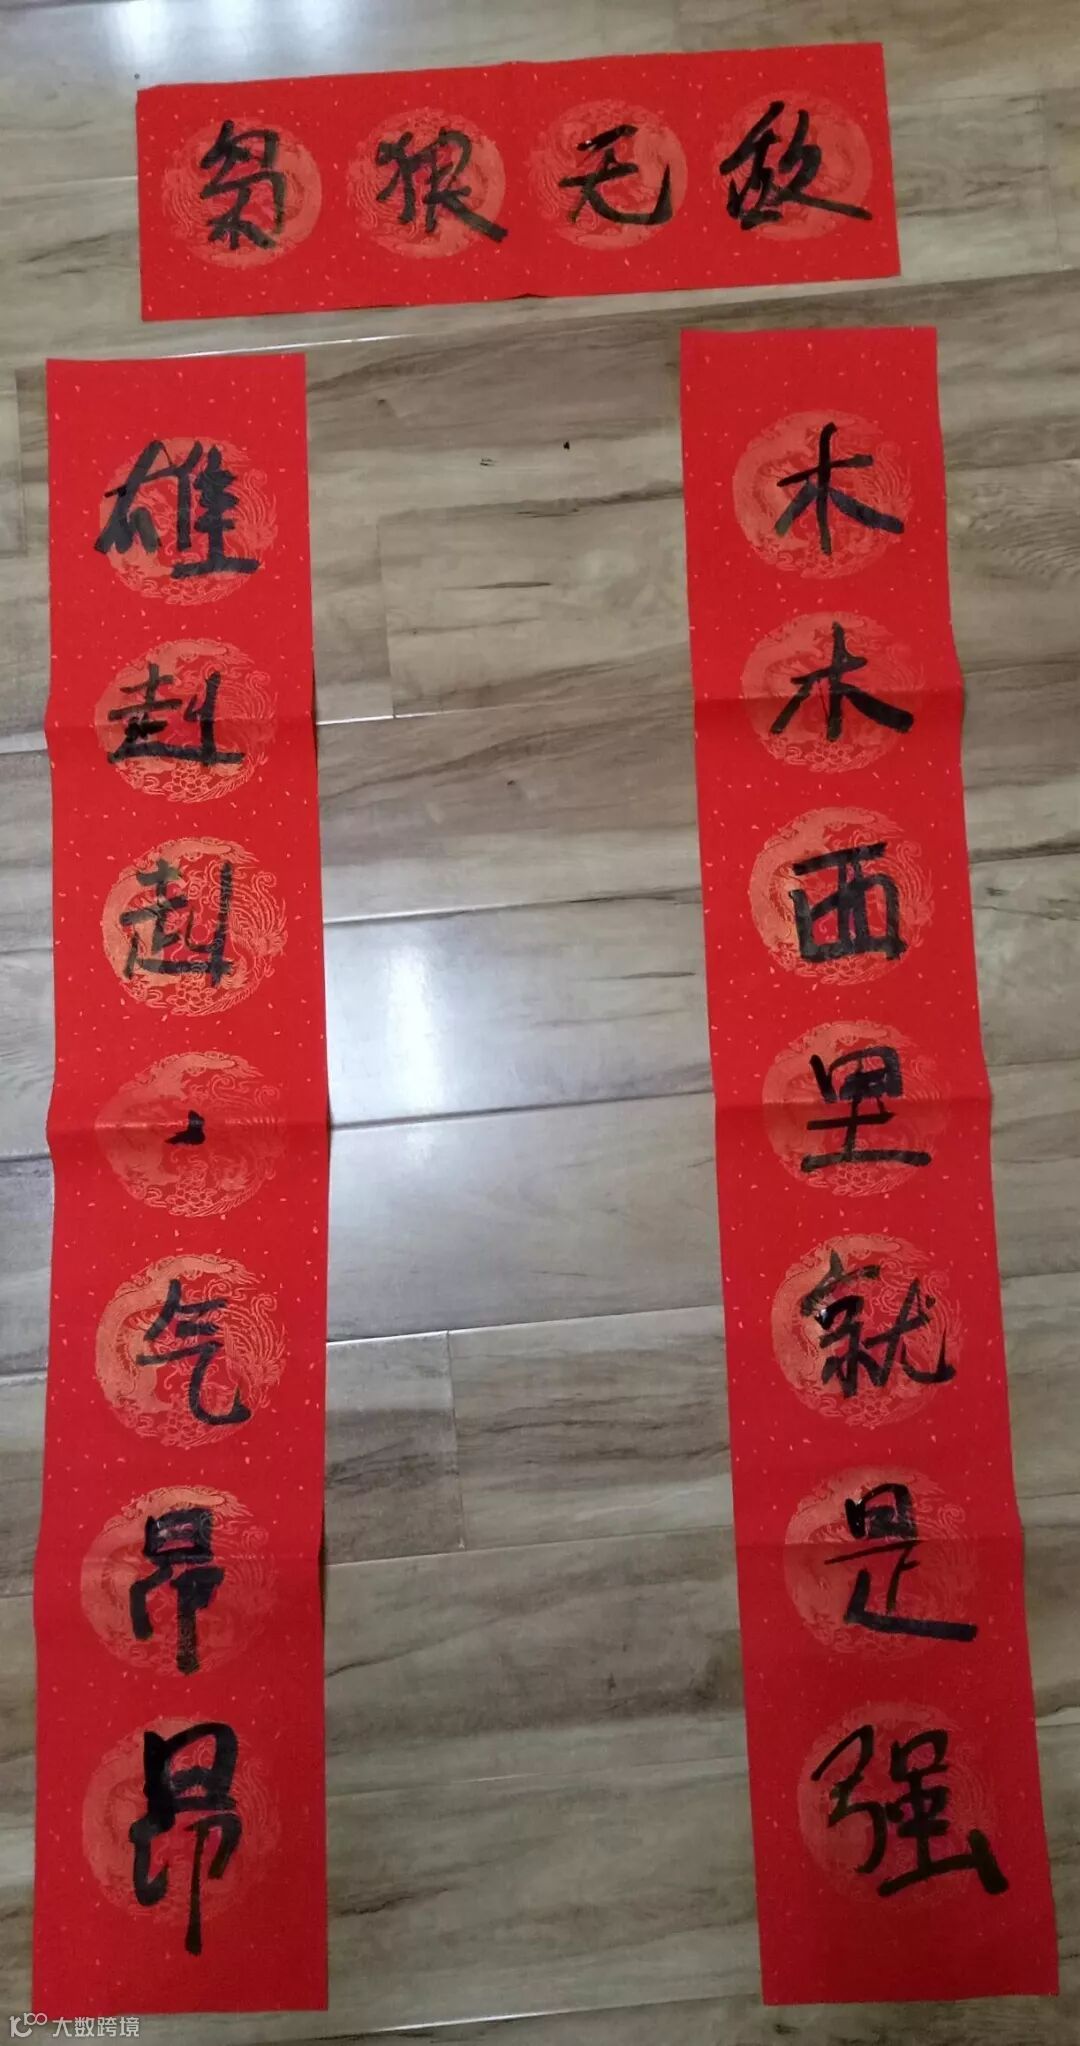 枭狼无敌
木木西里就是强
雄赳赳、气昂昂
大数跨境